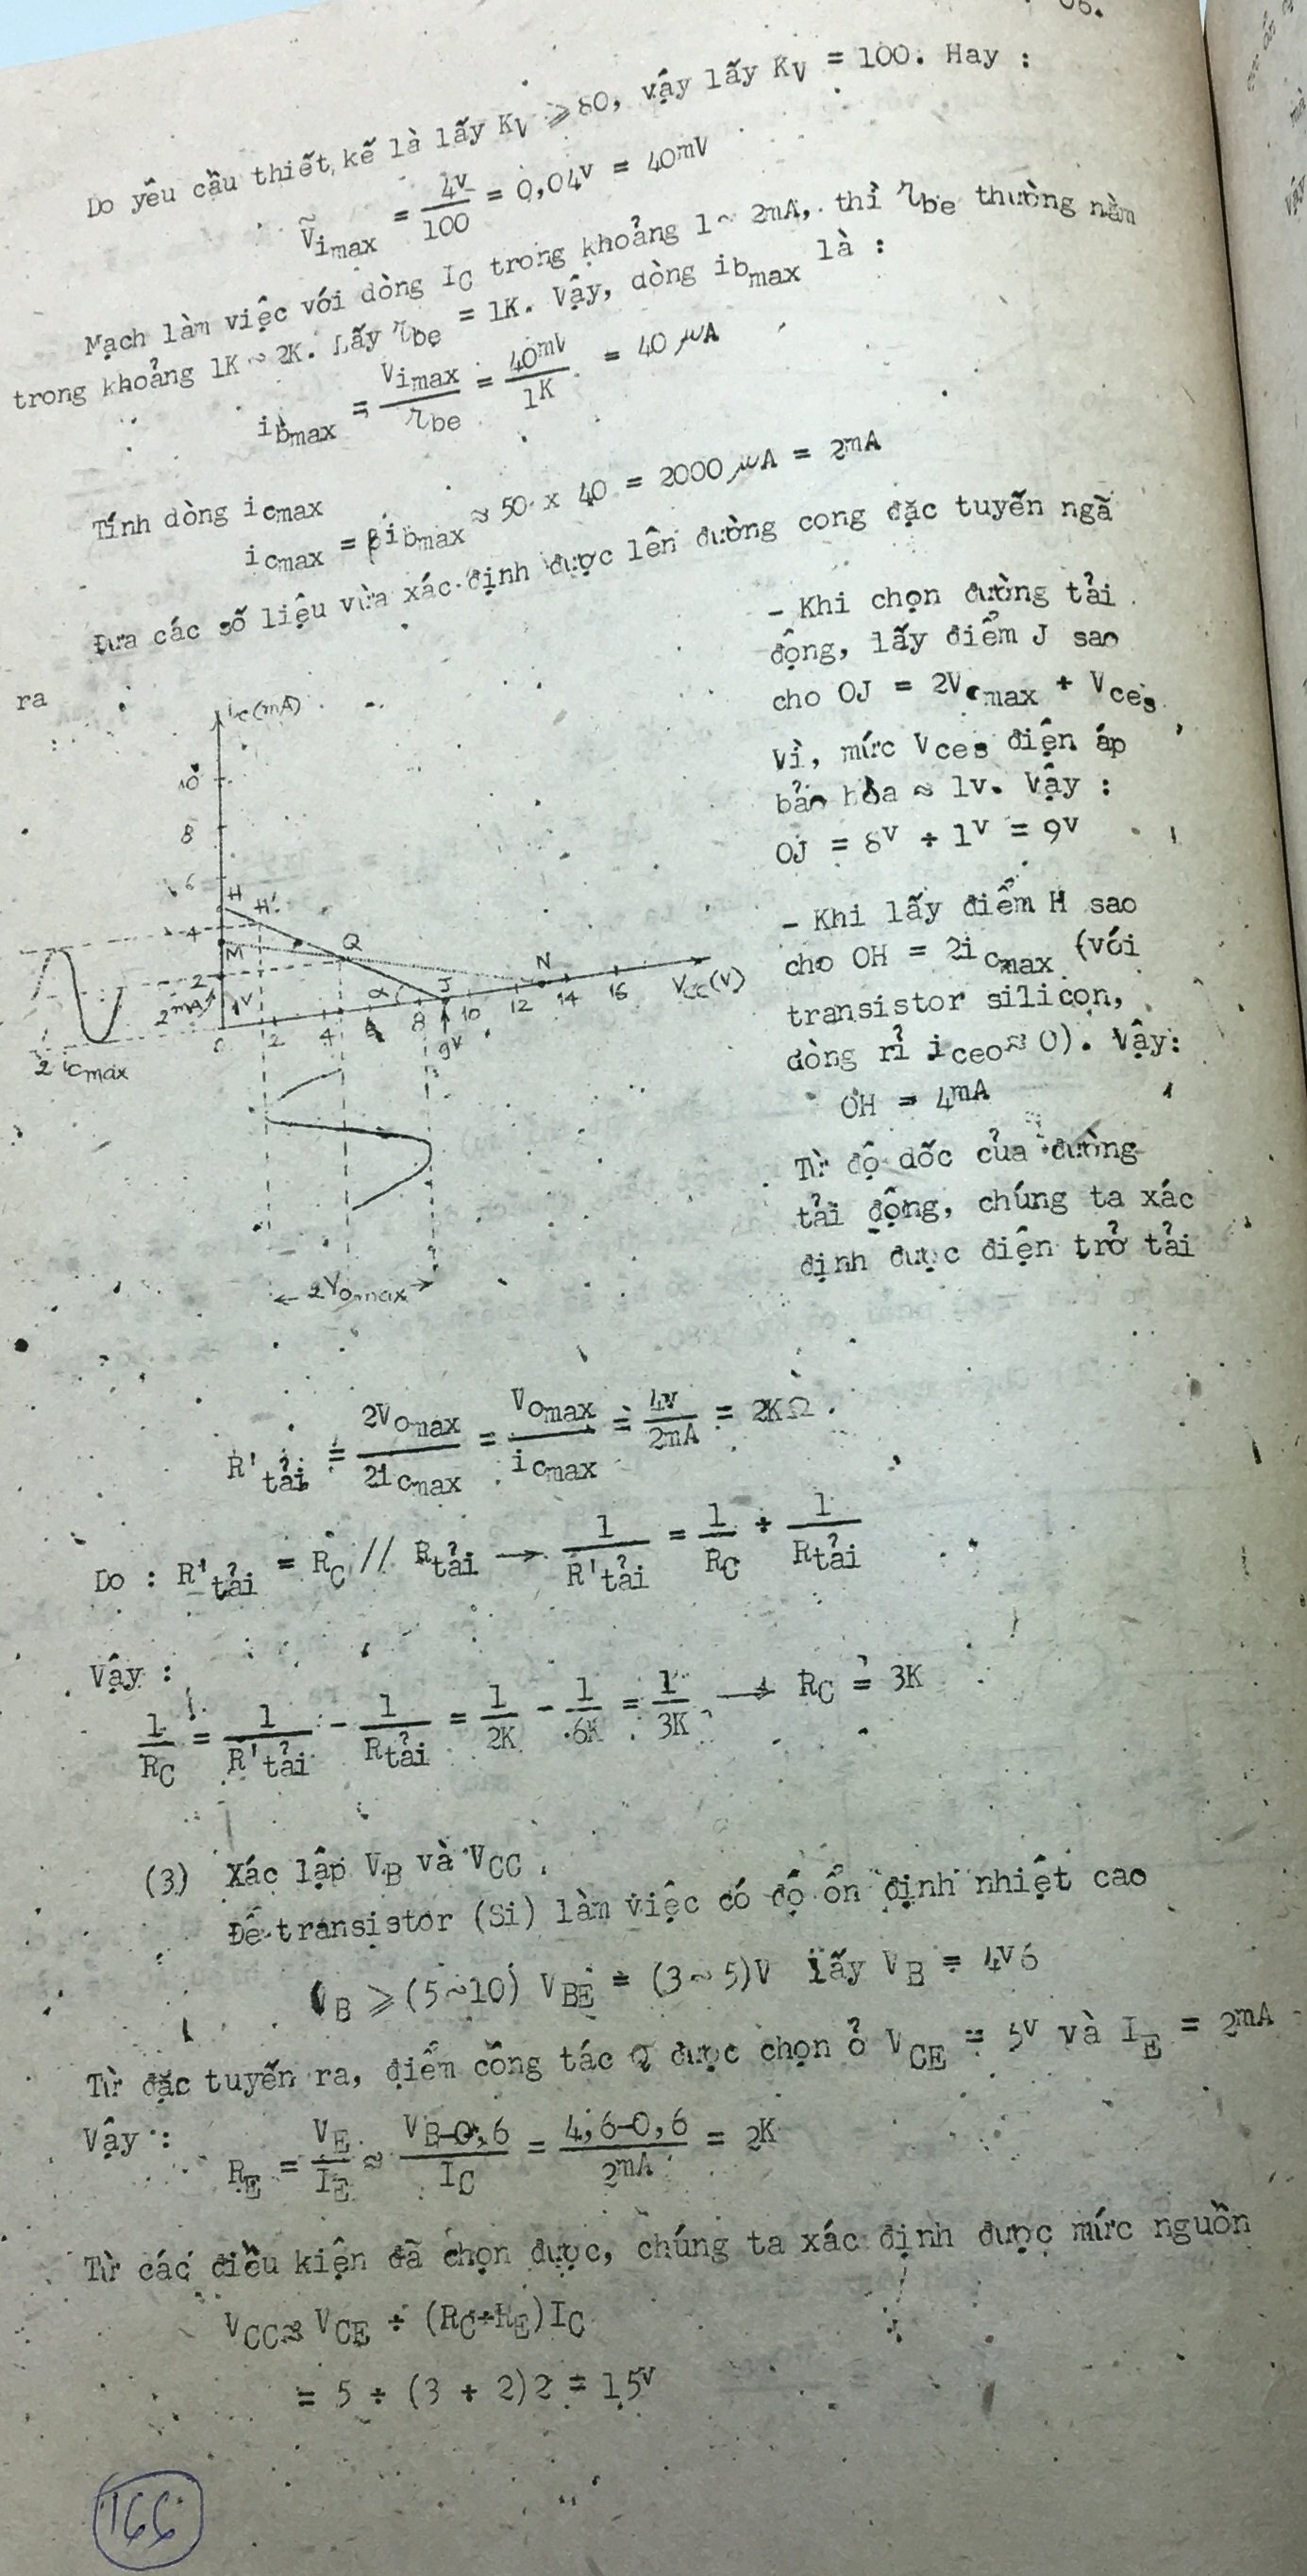 06.
Do yêu cầu thiết kế là lấy KV ⩾ 80, vậy lấy KV = 100. Hay :
Ṽimax = 4v/100 = 0,04v = 40mV
Mạch làm việc với dòng IC trong khoảng 1 ~ 2mA, thì rbe thường nằm
trong khoảng 1K ~ 2K. Lấy rbe = 1K. Vậy, dòng ibmax là :
ibmax = Vimax/rbe = 40mV/1K = 40 μA
Tính dòng icmax
icmax = βibmax ≈ 50 x 40 = 2000 μA = 2mA
Đưa các số liệu vừa xác định được lên đường cong đặc tuyến ngã
ra
- Khi chọn đường tải
động, lấy điểm J sao
cho OJ = 2Vcmax + Vces
Vì, mức Vces điện áp
bảo hòa ≈ 1v. Vậy :
OJ = 8V + 1V = 9V
- Khi lấy điểm H sao
cho OH = 2icmax (với
transistor silicon,
dòng rỉ iceo ≈ 0). Vậy:
OH = 4mA
Từ độ dốc của đường
tải động, chúng ta xác
định được điện trở tải
ic(mA)
10
8
6
H H'
4
M Q N
2
2mA 1V α J VCC(V)
0 2 4 6 8 10 12 14 16
9V
2 icmax
2Vomax
R'tải = 2Vomax/2icmax = Vomax/icmax = 4v/2mA = 2KΩ.
Do : R'tải = RC // Rtải → 1/R'tải = 1/RC + 1/Rtải
Vậy :
1/RC = 1/R'tải - 1/Rtải = 1/2K - 1/6K = 1/3K → RC = 3K
(3) Xác lập VB và VCC.
Để transistor (Si) làm việc có độ ổn định nhiệt cao
VB ⩾ (5~10) VBE = (3~5)V lấy VB = 4V6
Từ đặc tuyến ra, điểm công tác Q được chọn ở VCE = 5V và IE = 2mA
Vậy :
RE = VE/IE ≈ VB-0,6/IC = 4,6-0,6/2mA = 2K
Từ các điều kiện đã chọn được, chúng ta xác định được mức nguồn
VCC ≈ VCE + (RC+RE)IC
= 5 + (3 + 2)2 = 15V
166